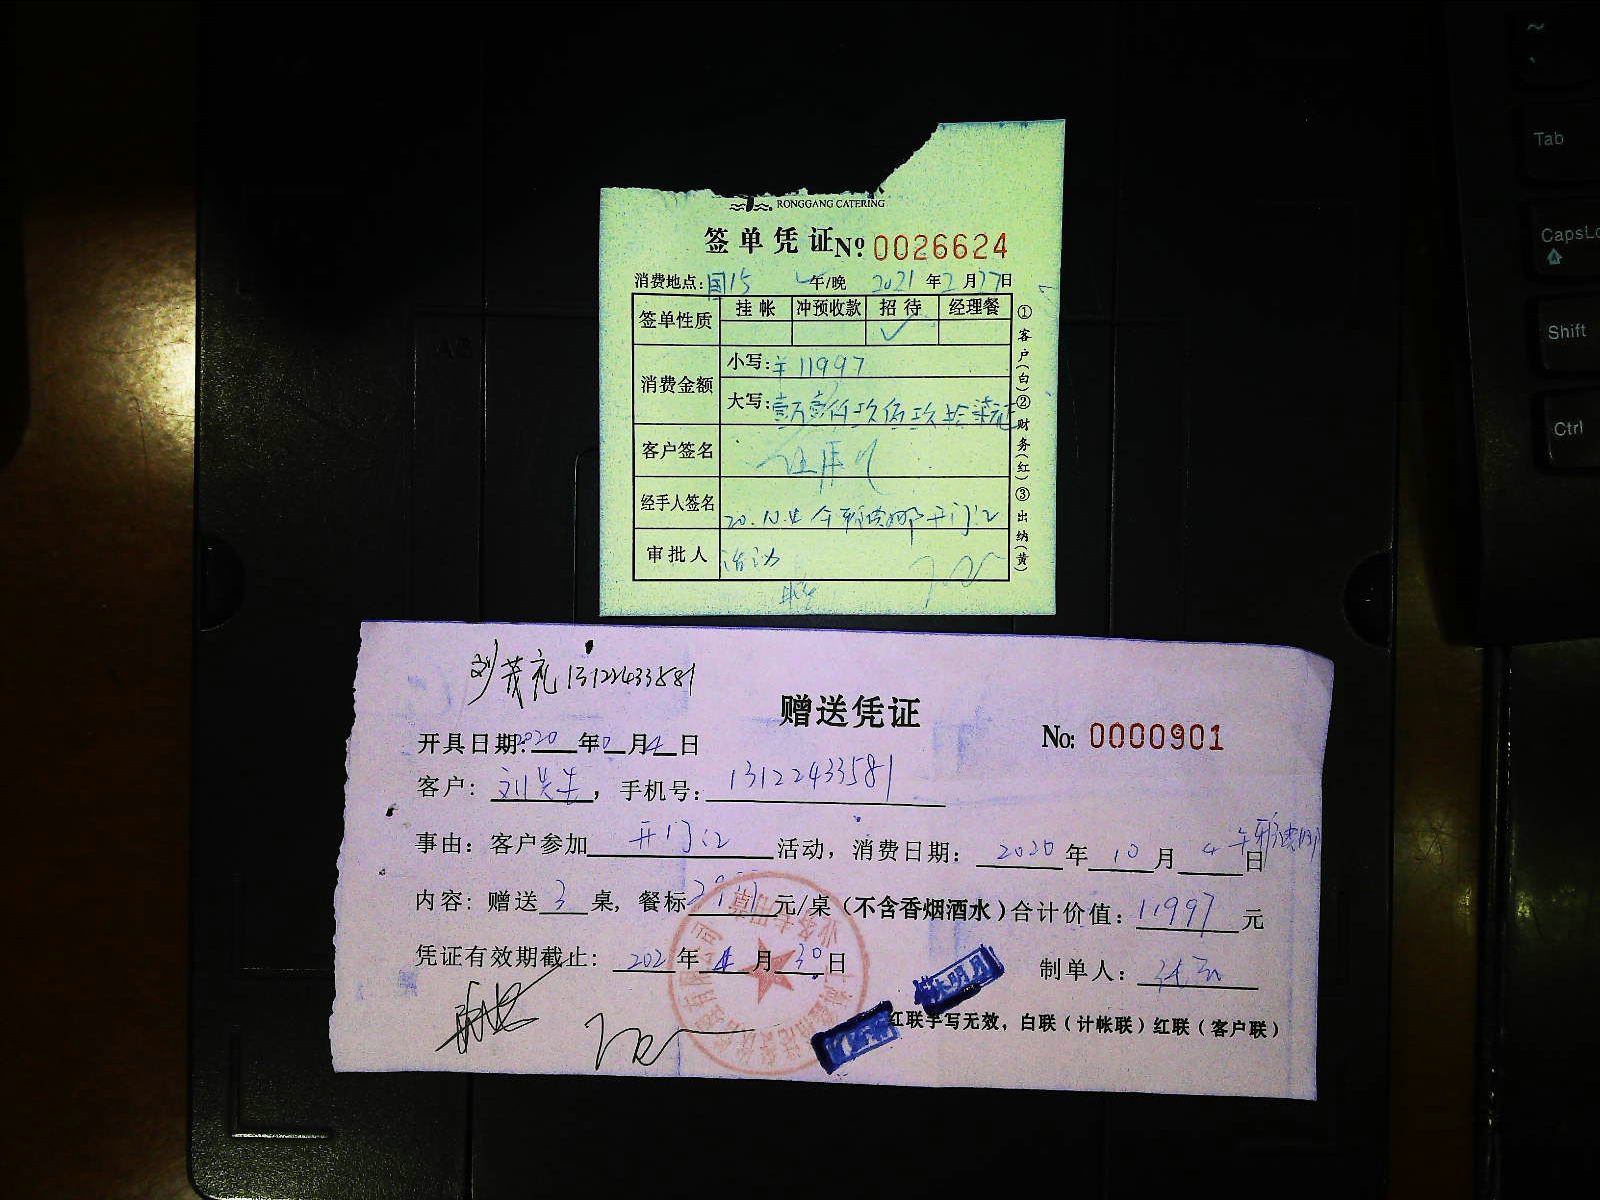 RONGGANG CATERING
签单凭证 No 0026624
消费地点: 国15 午/晚 2021年2月27日
签单性质 挂帐 冲预收款 招待 经理餐
✓
消费金额 小写: ¥11997
大写: 壹万壹仟玖佰玖拾柒元
客户签名
经手人签名 20.10.4 午 开门红
审批人 活动
①客户(白)②财务(红)③出纳(黄)
刘茂礼 13122433581
赠送凭证
No: 0000901
开具日期: 2020年10月4日
客户: 刘先生, 手机号: 13122433581
事由: 客户参加 开门红 活动, 消费日期: 2020年10月4日午
内容: 赠送3桌, 餐标3999元/桌(不含香烟酒水)合计价值: 11997元
凭证有效期截止: 2021年4月30日
制单人:
业务专用章
红联手写无效, 白联(计帐联)红联(客户联)
~
Tab
CapsLo
Shift
Ctrl